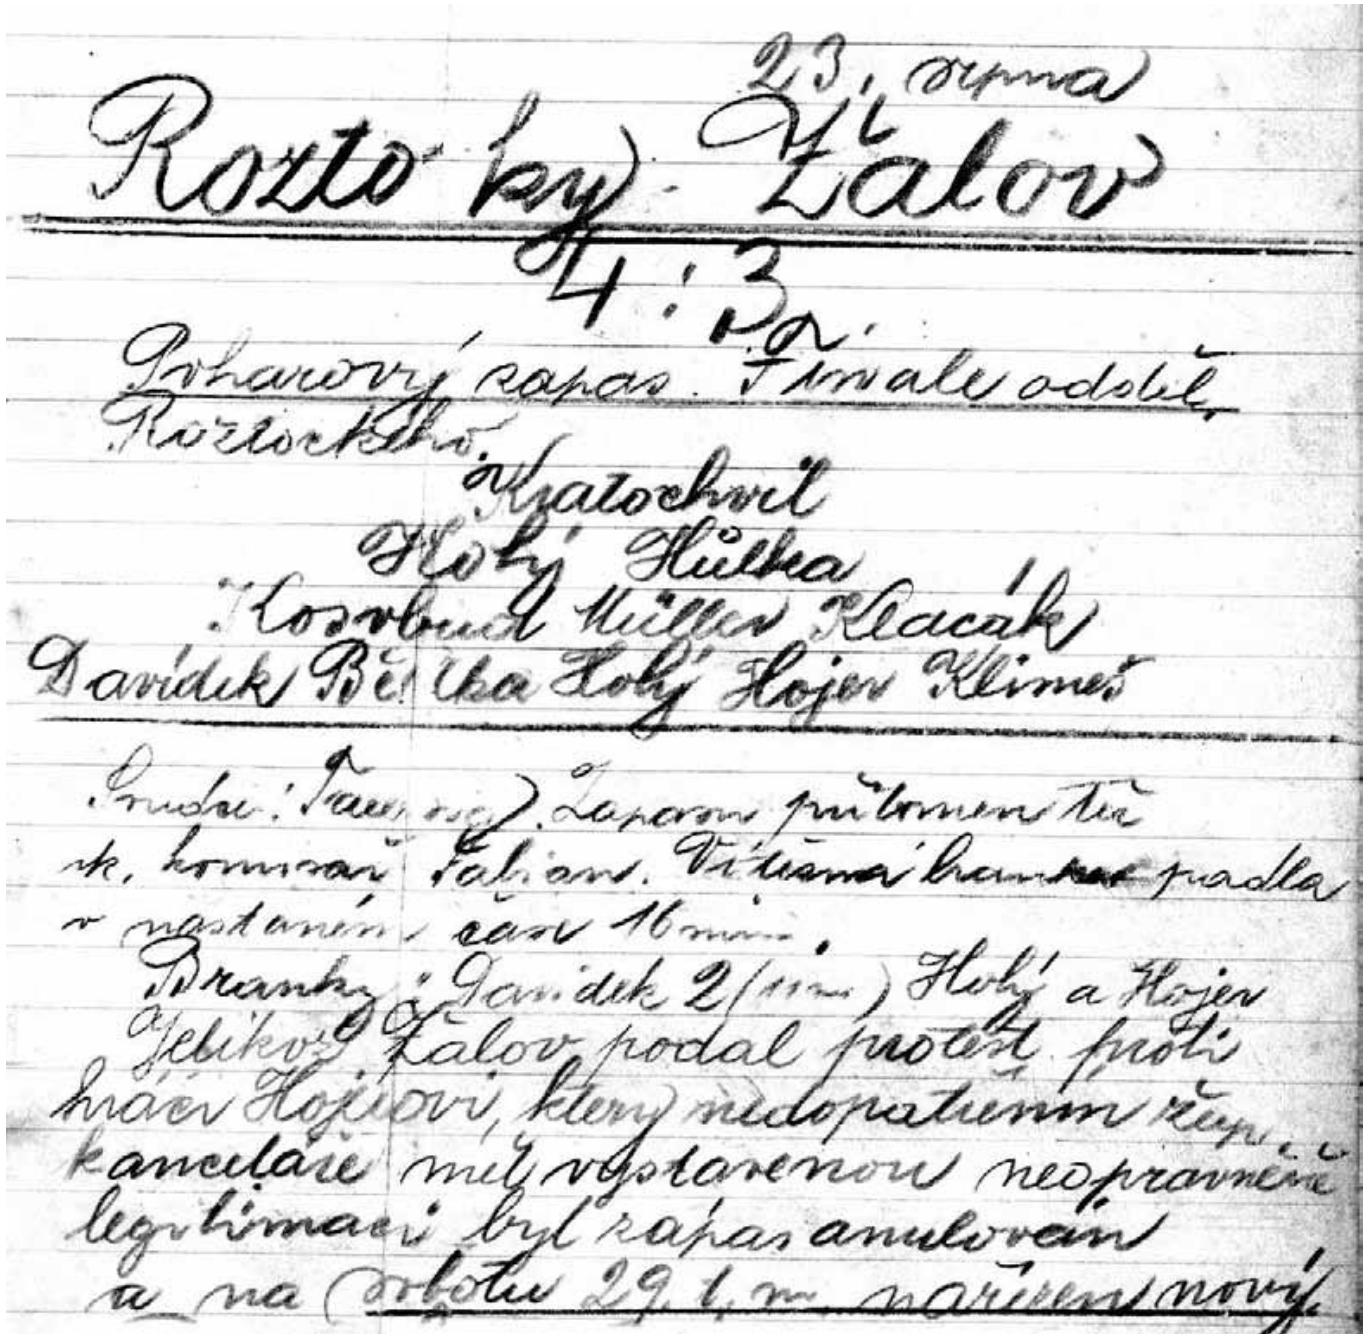 23. srpna
Roztoky - Žalov
4 : 3
Pohárový zápas. Finale odděl.
Roztockého.
Kratochvil
Holý Hůlka
Kosobud Müller Klacák
Davídek Bělka Holý Hojer Klimeš
Soudce: Zápasu přítomen též
sk. komisař Fabian. Vítězná padla
v nastaném čase 16 min.
Branky: Davidek 2 (11m) Holý a Hojer
Jelikož Žalov podal protest proti
hráči Hojerovi, který nedopatřením župní
kanceláře měl vystavenou neoprávněně
legitimaci byl zápas anulován
a na sobotu 29. t. m. nařízen nový.